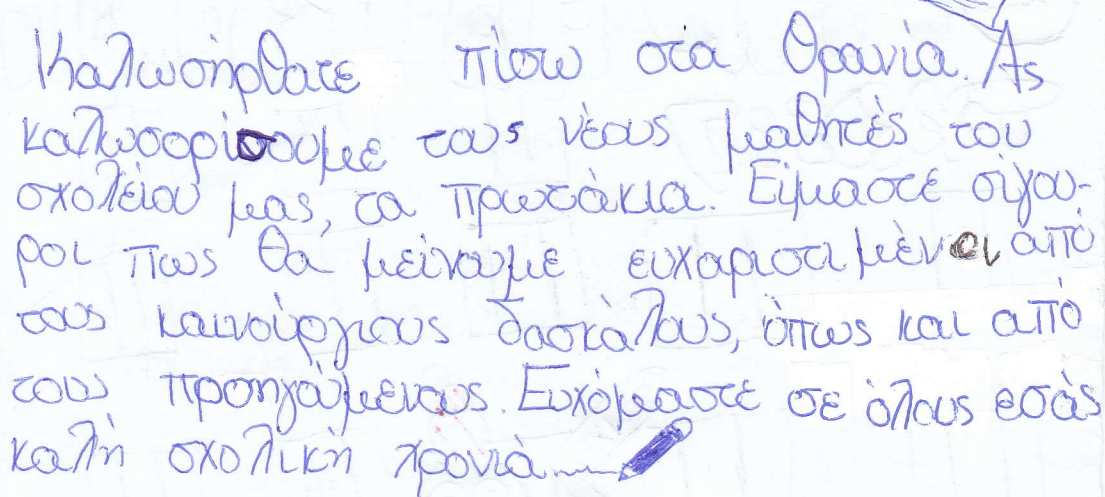 Καλωσήρθατε πίσω στα θρανία. Ας
καλωσορίσουμε τους νέους μαθητές του
σχολείου μας, τα πρωτάκια. Είμαστε σίγου-
ροι πως θα μείνουμε ευχαριστιμένοι από
τους καινούργιους δασκάλους, όπως και από
τους προηγούμενους. Ευχόμαστε σε όλους εσάς
καλή σχολική χρονιά......